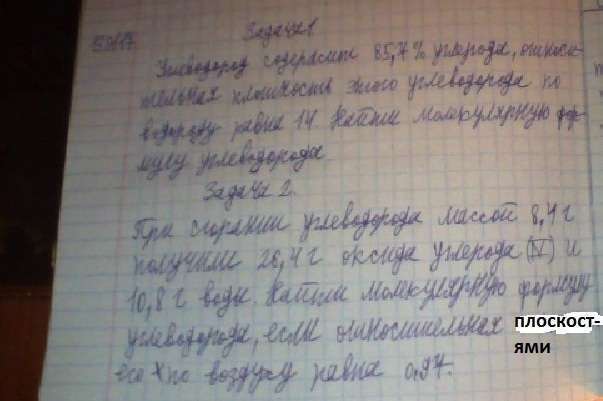 Задача 1
Углеводород содержит 85,7% углерода, относи-
тельная плотность этого углеводорода по
водороду равна 14. Найти молекулярную фор
мулу углеводорода
Задача 2.
При сгорании углеводорода массой 8,4г
получили 26,4г оксида углерода (IV) и
10,8г воды. Найти молекулярную формулу
углеводорода, если относительная плоскост-
ями
его по воздуху равна 0,97.